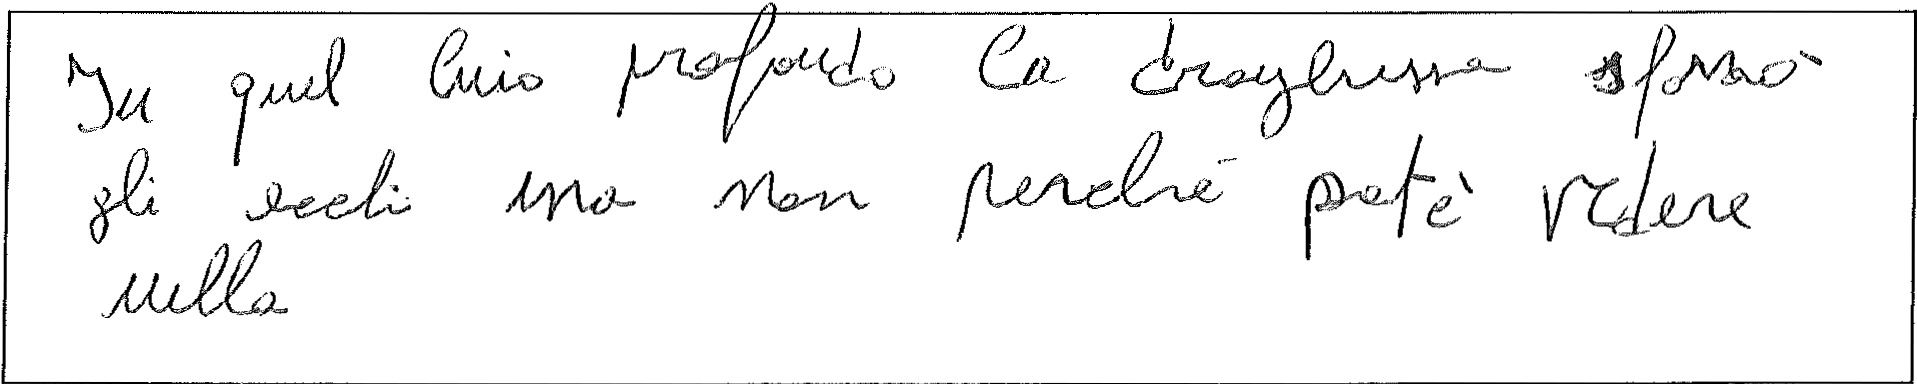 In quel buio profondo la draghessa sforzò
gli occhi ma non perché potè vedere
nulla